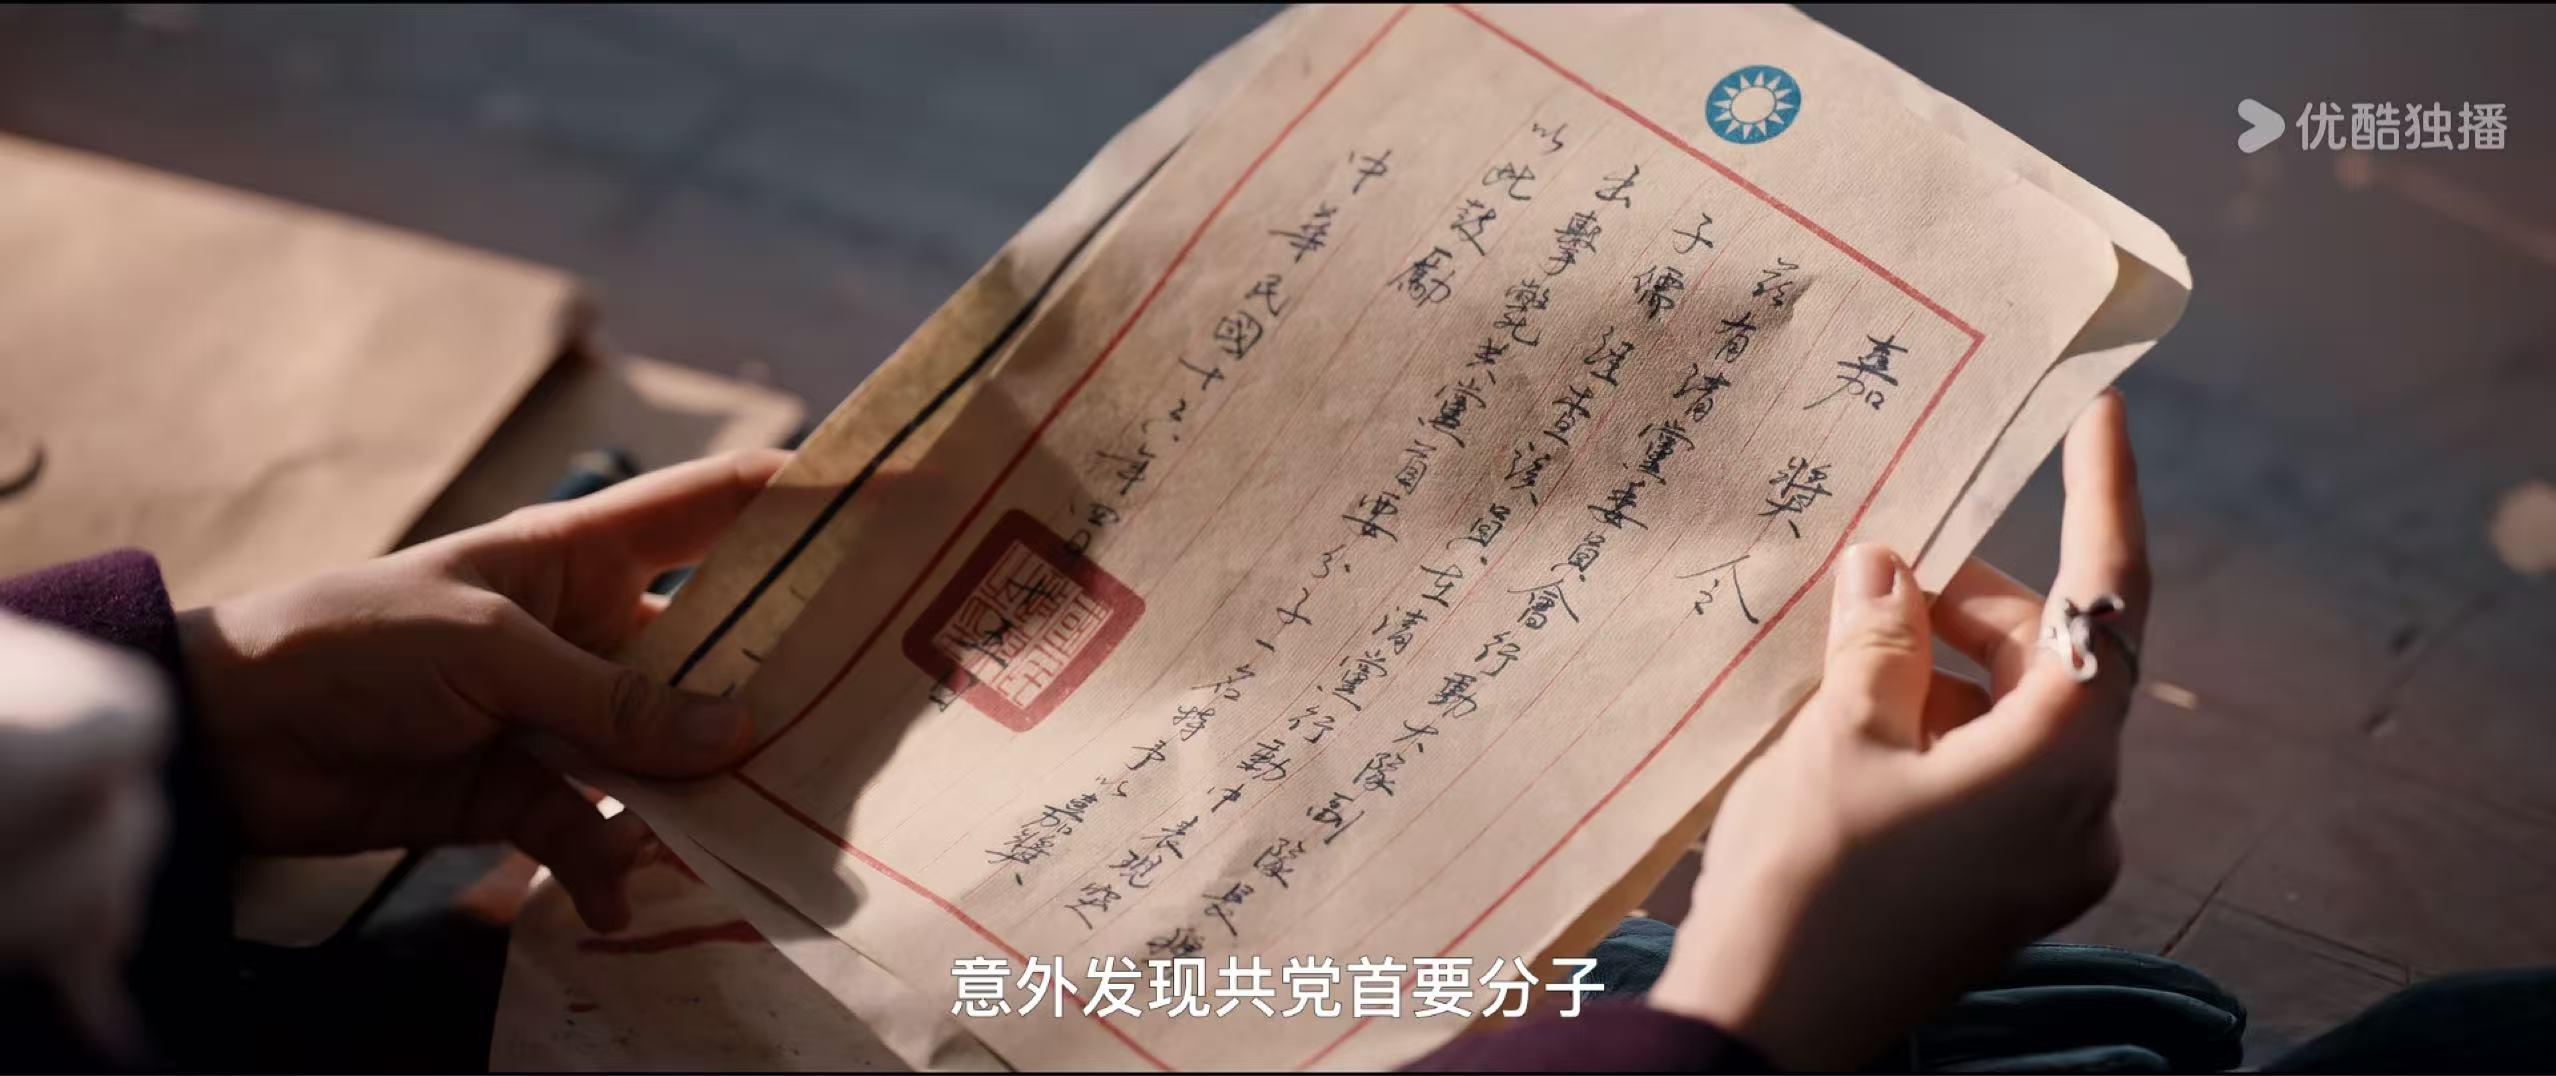 嘉獎令
茲有清黨委員會行動大隊副隊長
子儒經查該員在清黨行動中表現突
出擊斃共黨首要分子一名特予以嘉獎、
以此鼓勵
中華民國十六年四月廿五日
优酷独播
意外发现共党首要分子